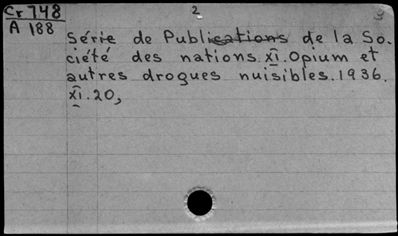 Cr 748
A 188
2
3
Série de Publications de la So.
ciété des nations. XI. Opium et
autres drogues nuisibles. 1936.
XI. 20,